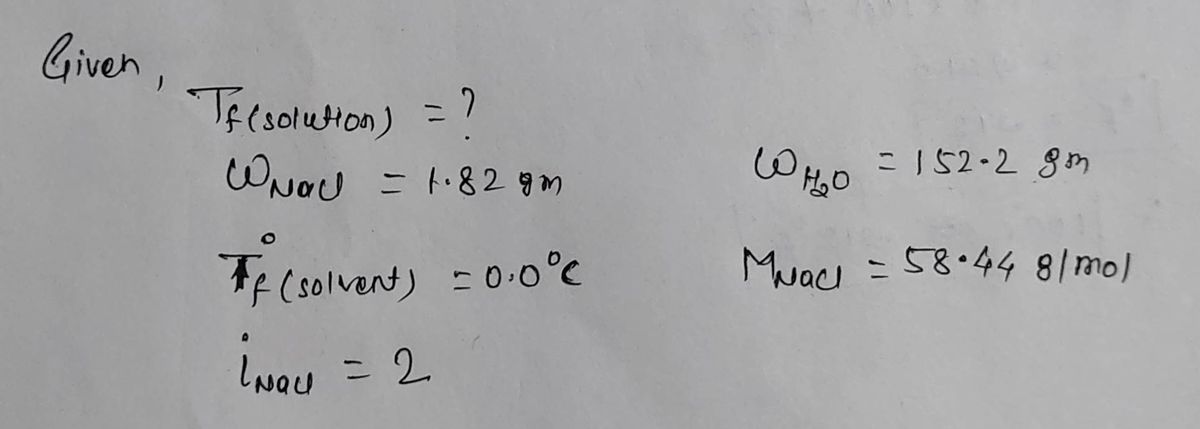 Given,
T_f(solution) = ?
ω_NaCl = 1.82 gm
ω_H₂O = 152.2 gm
T°_f (solvent) = 0.0°C
M_NaCl = 58.44 g/mol
i_NaCl = 2